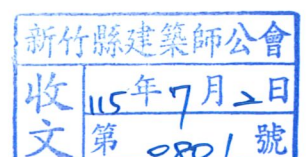 新竹縣建築師公會
收文
115年7月2日
第0801號